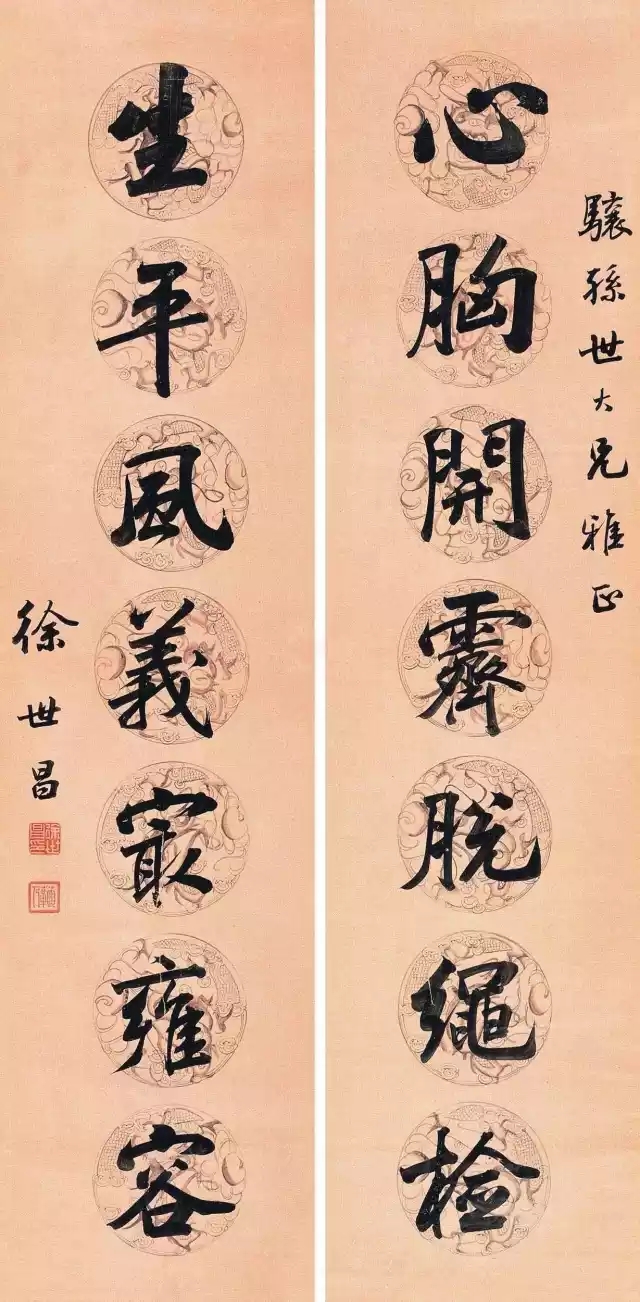 驤孫世大兄雅正
心胸開霽脫繩檢
生平風義㝡雍容
徐世昌
徐世昌印